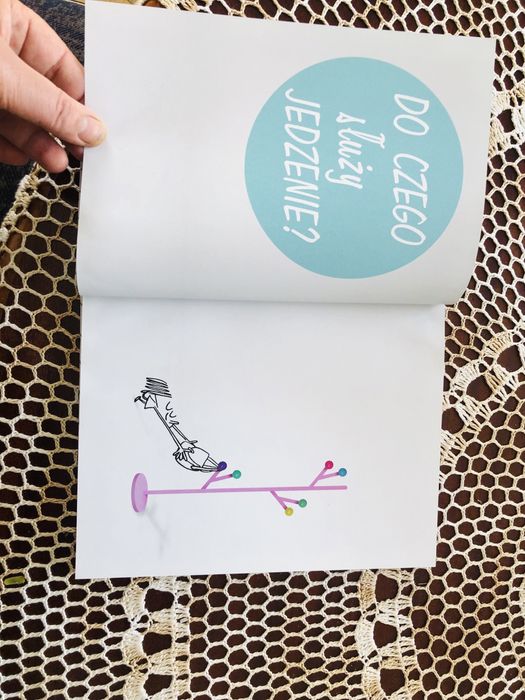 DO CZEGO
służy
JEDZENIE?